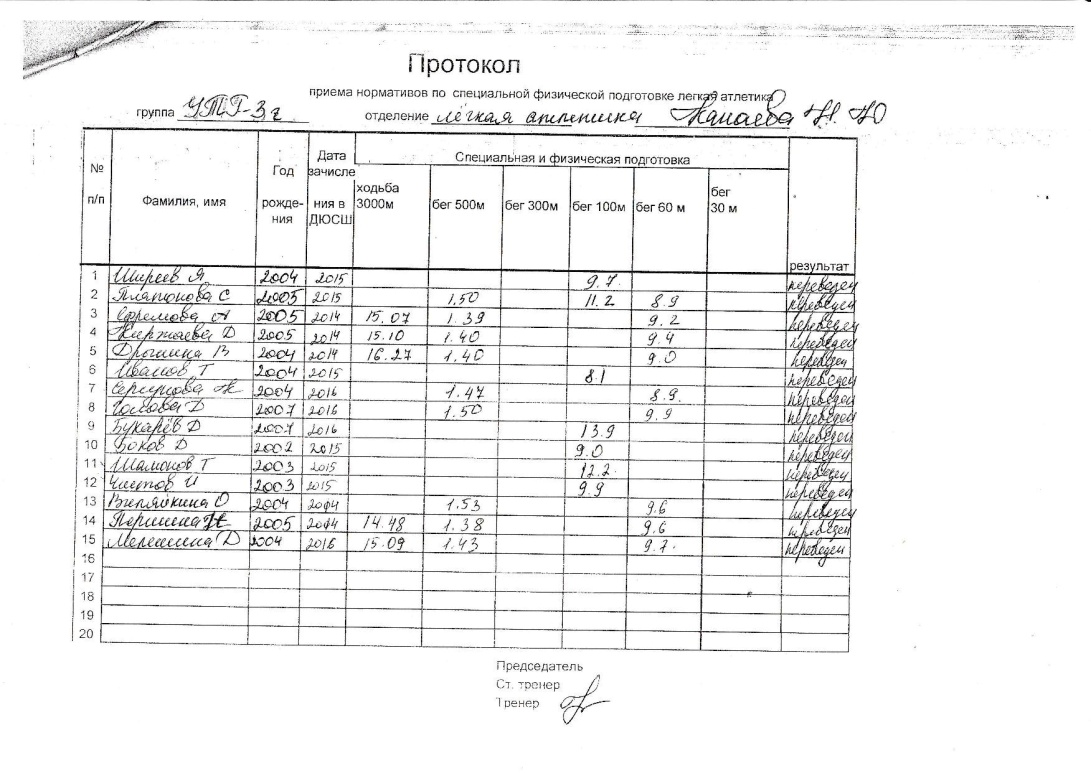 Протокол
приема нормативов по специальной физической подготовке легкая атлетика
группа УТГ-3г отделение лёгкая атлетика Н. Ю
№ п/п Фамилия, имя Год рожде- ния Дата зачисле ния в ДЮСШ Специальная и физическая подготовка результат
ходьба 3000м бег 500м бег 300м бег 100м бег 60 м бег 30 м
1 Ширеев Я 2004 2015 9.7. переведен
2 Платонова С 2003 2015 1.50 11.2 8.9 переведен
3 Ефремова А 2005 2014 15.07 1.39 9.2 переведен
4 Киржаева Д 2005 2014 15.10 1.40 9.4 переведен
5 В 2004 2014 16.27 1.40 9.0 переведен
6 Иванов Т 2004 2015 8.1 переведен
7 2004 2016 1.47 8.9. переведен
8 Д 2007 2016 1.50 9.9 переведен
9 Букарёв Д 2007 2016 13.9 переведен
10 Боков Д 2002 2015 9.0 переведен
11 Шамонов Т 2003 2015 12.2. переведен
12 И 2003 2015 9.9 переведен
13 О 2004 2014 1.53 9.6 переведен
14 2005 2014 14.48 1.38 9.6 переведен
15 Мелешина Д 2004 2016 15.09 1.43 9.7. переведен
16
17
18
19
20
Председатель
Ст. тренер
Тренер